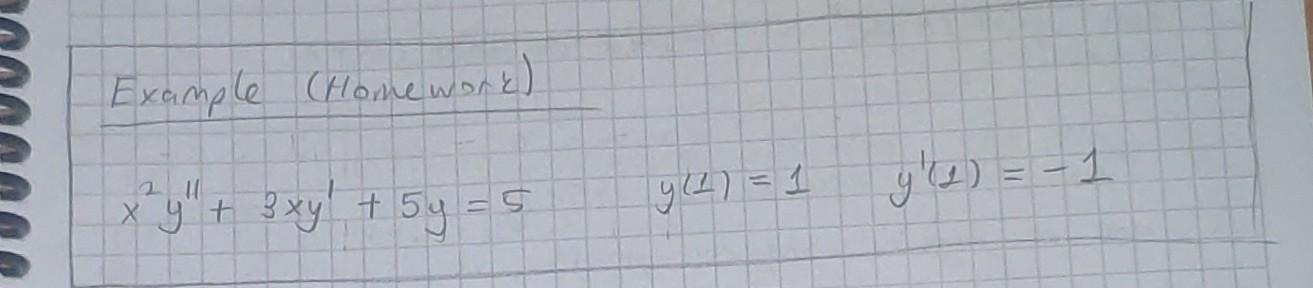 Example (Homework)
x²y" + 3xy' + 5y = 5 y(1) = 1 y'(1) = -1